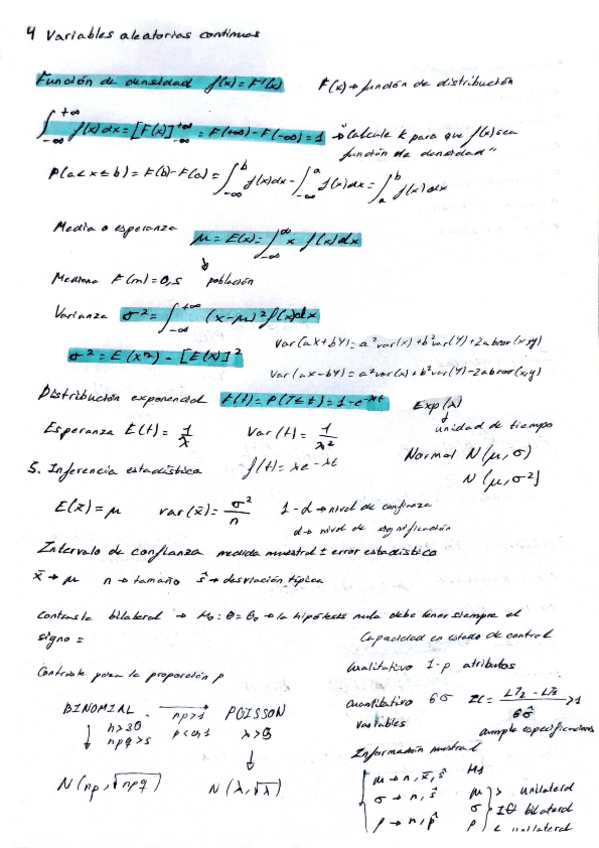 4 Variables aleatorias continuas
Función de densidad f(x) = F'(x) F(x) → función de distribución
∫_{-∞}^{+∞} f(x) dx = [F(x)]_{-∞}^{+∞} = F(+∞) - F(-∞) = 1 "Calcule k para que f(x) sea
función de densidad"
P(a < x ≤ b) = F(b) - F(a) = ∫_{-∞}^{b} f(x)dx - ∫_{-∞}^{a} f(x)dx = ∫_{a}^{b} f(x)dx
Media o esperanza μ = E(x) = ∫_{-∞}^{∞} x f(x) dx
↓
Mediana F(m) = 0,5 población
Varianza σ² = ∫_{-∞}^{+∞} (x-μ)² f(x)dx
Var(aX+bY) = a²var(x) + b²var(Y) + 2abcov(x,y)
σ² = E(x²) - [E(x)]²
Var(ax-bY) = a²var(x) + b²var(Y) - 2abcov(x,y)
Distribución exponencial F(t) = P(T ≤ t) = 1 - e^{-λt} Exp(λ)
↓
unidad de tiempo
Esperanza E(t) = 1/λ Var(t) = 1/λ²
Normal N(μ, σ)
5. Inferencia estadística f(t) = λe^{-λt}
N(μ, σ²)
E(x̄) = μ var(x̄) = σ²/n 1-α → nivel de confianza
α → nivel de significación
Intervalo de confianza medida muestral ± error estadístico
x̄ → μ n → tamaño ŝ → desviación típica
Contraste bilateral → H₀: θ = θ₀ → la hipótesis nula debe tener siempre el
signo =
Capacidad en estado de control
Contraste para la proporción p
Cualitativo 1-p atributos
BINOMIAL np>1 → POISSON
n>30 p<0,1 λ>5
npq>5
Cuantitativo 6σ IC = (LT₂ - LT₁)/6σ̂ >1
variables cumple especificaciones
Información muestral
N(np, √npq) N(λ, √λ)
H₁
μ → n, x̄, ŝ μ > unilateral
σ → n, ŝ σ ≠ θ bilateral
p → n, p̂ p < unilateral